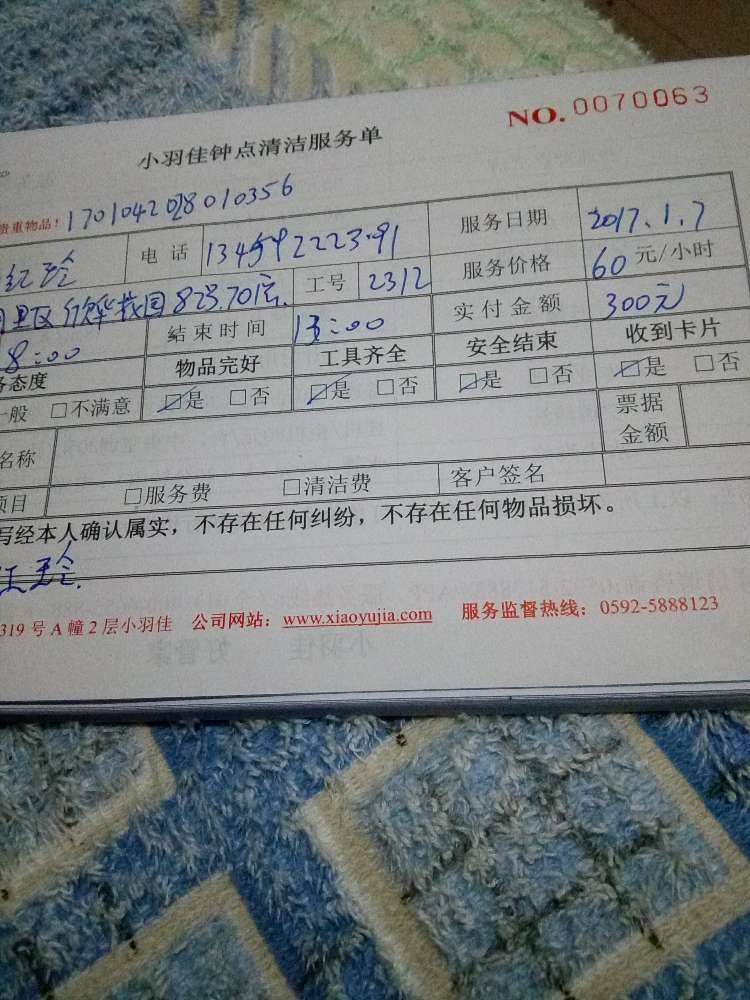 NO.0070063
小羽佳钟点清洁服务单
贵重物品！170104208010356
电话 服务日期 2017.1.7
工号 2312 服务价格 60 元/小时
8:00 结束时间 13:00 实付金额 300元
态度 物品完好 工具齐全 安全结束 收到卡片
一般 □不满意 ☑是 □否 ☑是 □否 ☑是 □否 ☑是 □否
名称 票据金额
项目 □服务费 □清洁费 客户签名
写经本人确认属实，不存在任何纠纷，不存在任何物品损坏。
319号A幢2层小羽佳 公司网站：www.xiaoyujia.com 服务监督热线：0592-5888123